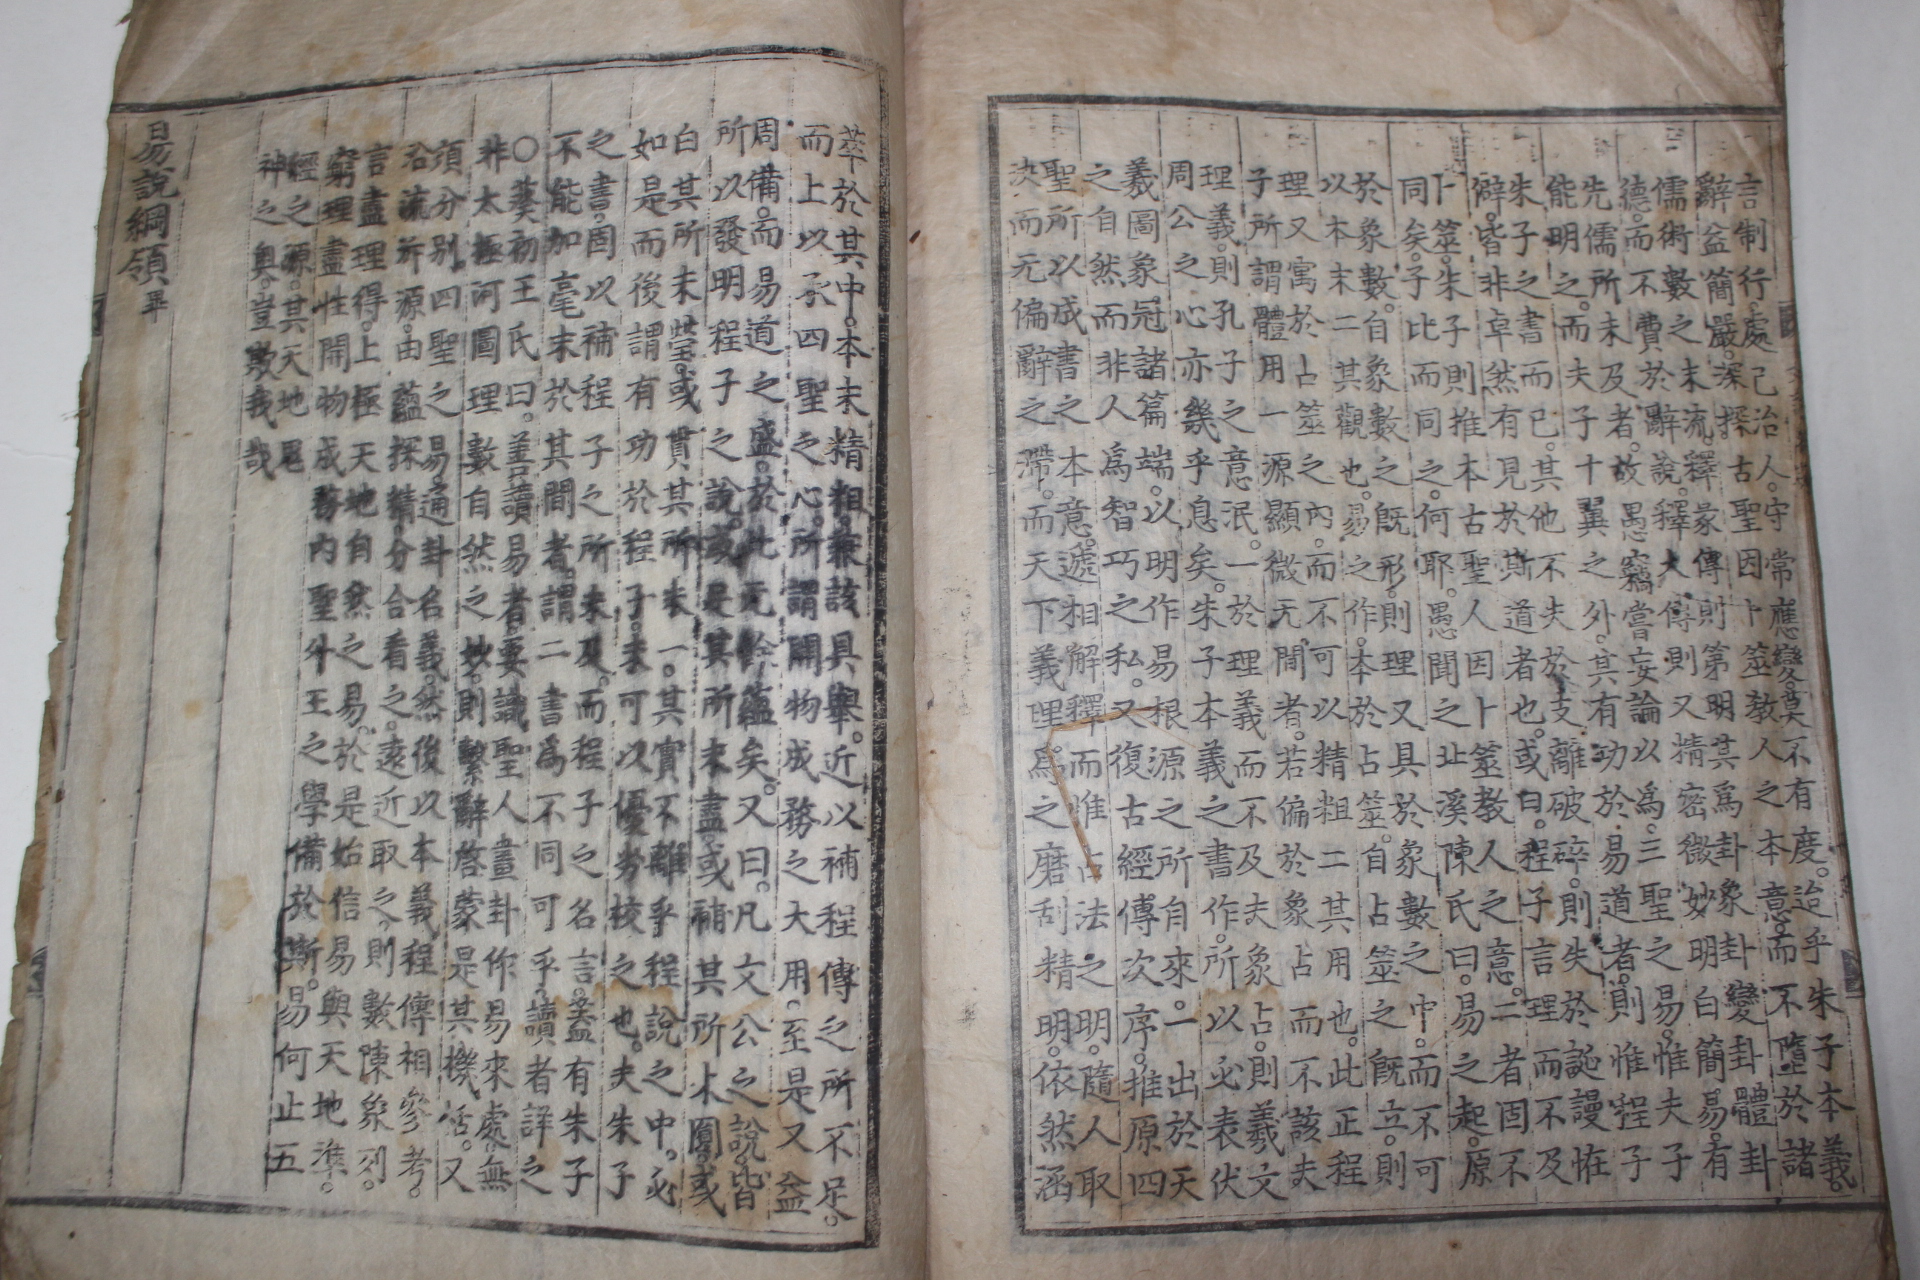 言制行處己治人守常應變莫不有度。迨乎朱子本義。
辭益簡嚴。探探古聖因卜筮教人之本意。而不墮於諸
儒術數之末流。釋彖傳則第明其爲卦象卦變卦體卦
德。而不費於辭說。釋大傳則又精密微妙明白簡易。有
先儒所未及者。故愚竊嘗妄論以爲。三聖之易。惟夫子
能明之。而夫子十翼之外。其有功於易道者。則惟程子
朱子之書而已。其他不夫於支離破碎。則失於誕謾恠
僻。皆非卓然有見於斯道者也。或曰。程子言理而不及
卜筮。朱子則推本古聖人因卜筮教人之意。二者固不
同矣。子比而同之。何耶。愚聞之北溪陳氏曰。易之起。原
於象數。自象數之旣形。則理又具於象數之中。而不可
以本末二其觀也。易之作。本於占筮。自占筮之旣立。則
理又寓於占筮之內。而不可以精粗二其用也。此正程
子所謂體用一源顯微无間者。若偏於象占而不該夫
理義。則孔子之意泯。一於理義而不及夫象占。則羲文
周公之心亦幾乎息矣。朱子本義之書作。所以必表伏
羲圖象冠諸篇端。以明作易根源之所自來。一出於天
之自然而非人爲智巧之私。又復古經傳次序。推原四
聖所以成書之本意。遞相解釋而惟占法之明。隨人取
決而无偏辭之滯。而天下義理爲之磨刮精明。依然涵
萃於其中。本末精粗。兼該具擧。近以補程傳之所不足。
而上以承四聖之心。所謂開物成務之大用。至是又益
周備。而易道之盛。於此无餘蘊矣。又曰。凡文公之說。皆
所以發明程子之說。或是其所未盡。或補其所未圓。或
白其所未瑩。或貫其所未一。其實不離乎程說之中。必
如是而後謂有功於程子。未可以優劣校之也。夫朱子
之書。固以補程子之所未及。而程子之名言。蓋有朱子
不能加毫末於其間者。謂二書爲不同可乎。讀者詳之
○葵初王氏曰。善讀易者。要識聖人畫卦作易來處。無
非太極河圖理數自然之妙。則繫辭啓蒙是其機括。又
須分別。四聖之易。通卦名義。然後以本義程傳相參考。
沿流泝源。由蘊探精。分合看之。遠近取之。則數陳象列。
言盡理得。上極天地自然之易。於是始信易與天地準。
窮理盡性開物成務內聖外王之學備於斯。易何止五
經之源。其天地鬼
神之奧。豈欺我哉
易說綱領畢